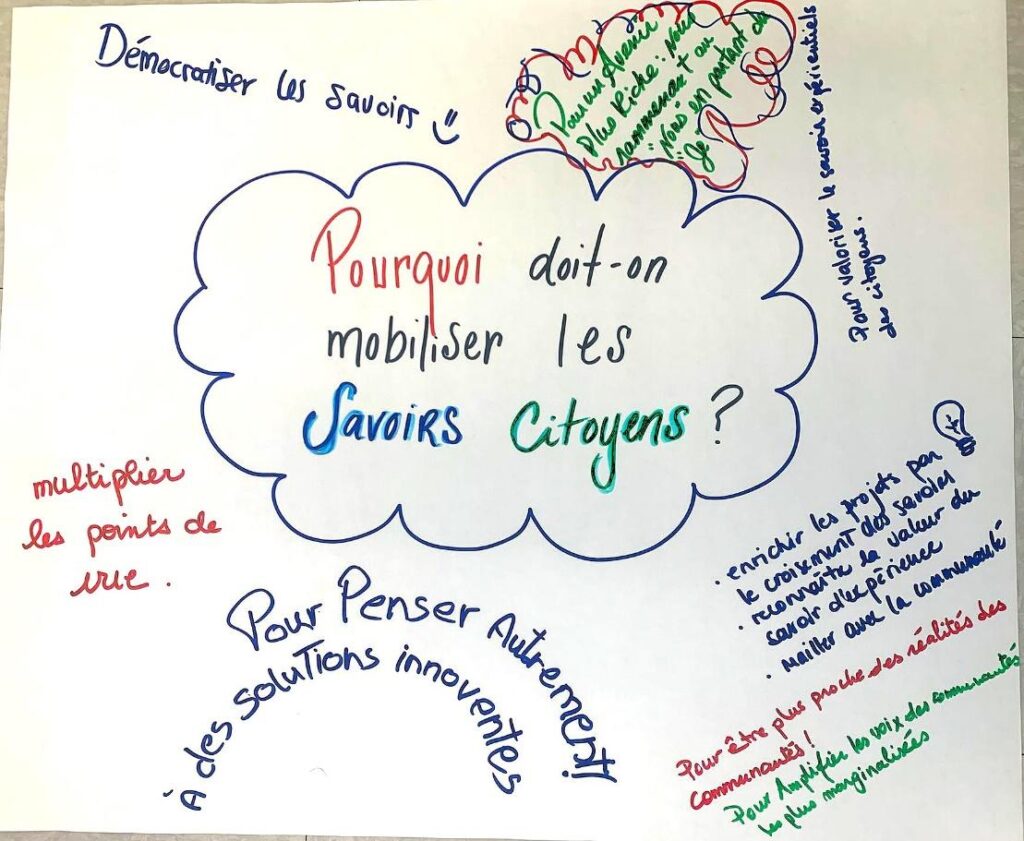 Démocratiser les savoirs
Pour un Avenir
Plus Riche. Nous
ramenant au
"Nous" en partant du
"Je"
Pour valoriser le savoir expérientiels
des citoyens.
Pourquoi doit-on
mobiliser les
Savoirs Citoyens ?
multiplier
les points de
vue.
Pour Penser Autrement!
À des solutions innoventes
• enrichir les projets par
le croisement des savoirs
• reconnaître la valeur du
savoir d'expérience
• mailler avec la communauté
Pour être plus proche des réalités des
communautés!
Pour Amplifier les voix des communautés
les plus marginalisées